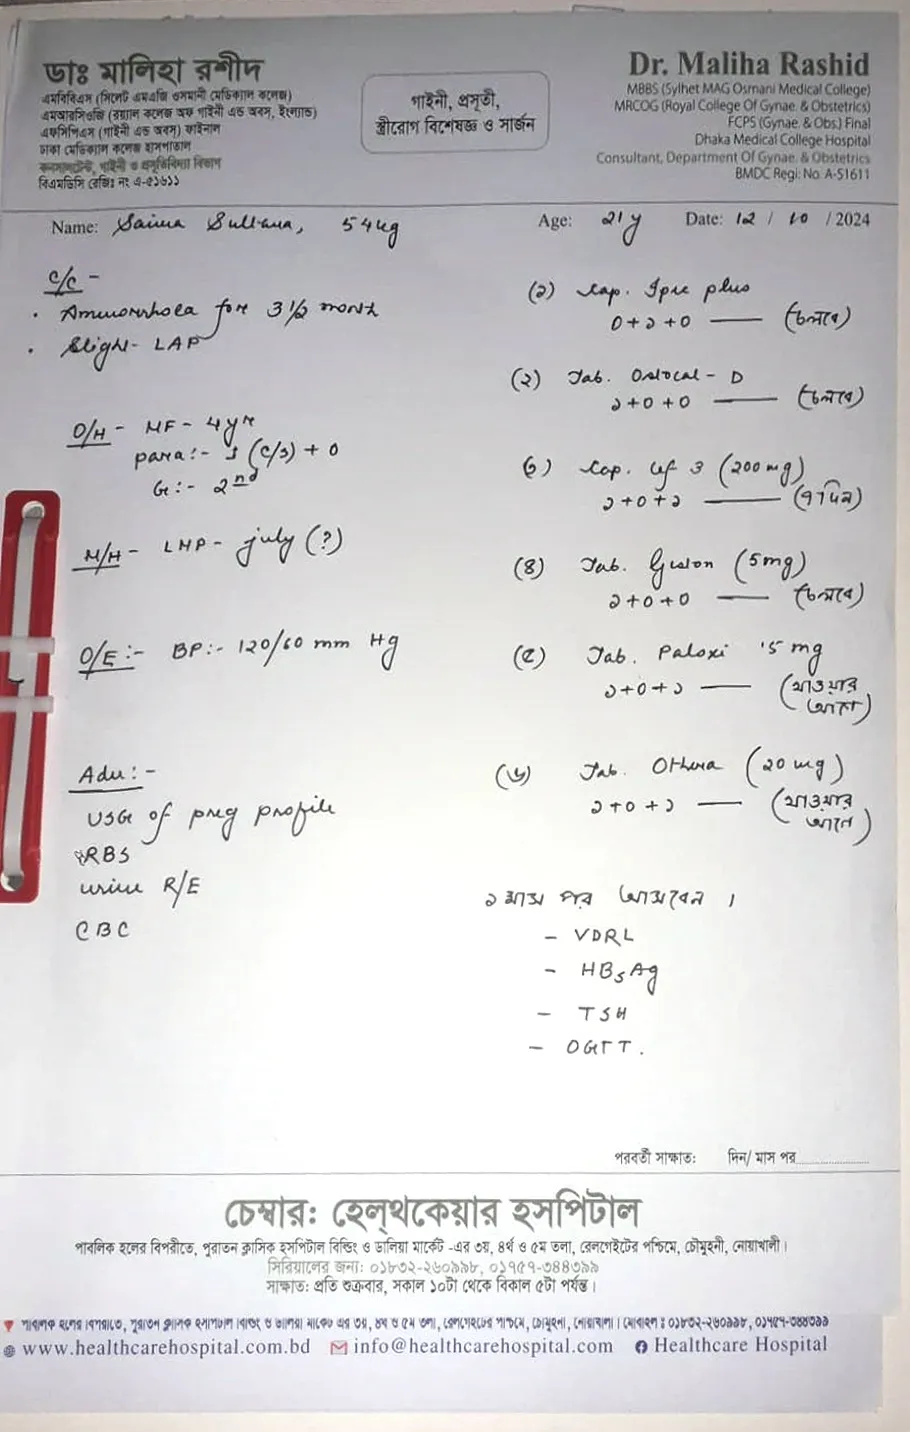 ডাঃ মালিহা রশীদ
এমবিবিএস (সিলেট এমএজি ওসমানী মেডিক্যাল কলেজ)
এমআরসিওজি (রয়্যাল কলেজ অফ গাইনী এন্ড অবস, ইংল্যান্ড)
এফসিপিএস (গাইনী এন্ড অবস) ফাইনাল
ঢাকা মেডিক্যাল কলেজ হাসপাতাল
কনসালটেন্ট, গাইনী ও প্রসূতিবিদ্যা বিভাগ
বিএমডিসি রেজিঃ নং এ-৫১৬১১
গাইনী, প্রসূতী,
স্ত্রীরোগ বিশেষজ্ঞ ও সার্জন
Dr. Maliha Rashid
MBBS (Sylhet MAG Osmani Medical College)
MRCOG (Royal College Of Gynae. & Obstetrics)
FCPS (Gynae. & Obs.) Final
Dhaka Medical College Hospital
Consultant, Department Of Gynae. & Obstetrics
BMDC Regi: No. A-51611
Name: Saima Sultana, 54kg Age: 21y Date: 12 / 10 / 2024
C/C -
• Amenorrhoea for 3½ month
• Slight LAP
O/H - MF - 4yr
para:- 1 (C/S) + 0
G:- 2nd
M/H - LMP - july (?)
O/E:- BP:- 120/60 mm Hg
Adv:-
USG of preg profile
RBS
urine R/E
CBC
(১) Cap. Ipec plus
0+১+0 — (চলবে)
(২) Tab. Ostocal - D
১+0+0 — (চলবে)
(৩) Cap. Cef 3 (200mg)
১+0+১ — (৭দিন)
(৪) Tab. (5mg)
১+0+0 — (চলবে)
(৫) Tab. Paloxi 5mg
১+0+১ — (খাওয়ার
আগে)
(৬) Tab. Othera (20mg)
১+0+১ — (খাওয়ার
আগে)
১ মাস পর আসবেন।
- VDRL
- HBsAg
- TSH
- OGTT.
পরবর্তী সাক্ষাত: দিন/ মাস পর
চেম্বার: হেল্থকেয়ার হসপিটাল
পাবলিক হলের বিপরীতে, পুরাতন ক্লাসিক হসপিটাল বিল্ডিং ও ডালিয়া মার্কেট -এর ৩য়, ৪র্থ ও ৫ম তলা, রেলগেইটের পশ্চিমে, চৌমুহনী, নোয়াখালী।
সিরিয়ালের জন্য: ০১৮৩২-২৬০৯৯৮, ০১৭৫৭-৩৪৪৩৯৯
সাক্ষাত: প্রতি শুক্রবার, সকাল ১০টা থেকে বিকাল ৫টা পর্যন্ত।
পাবলিক হলের বিপরীতে, পুরাতন ক্লাসিক হসপিটাল বিল্ডিং ও ডালিয়া মার্কেট এর ৩য়, ৪র্থ ও ৫ম তলা, রেলগেইটের পশ্চিমে, চৌমুহনী, নোয়াখালী। মোবাইল: ০১৮৩২-২৬০৯৯৮, ০১৭৫৭-৩৪৪৩৯৯
www.healthcarehospital.com.bd info@healthcarehospital.com Healthcare Hospital